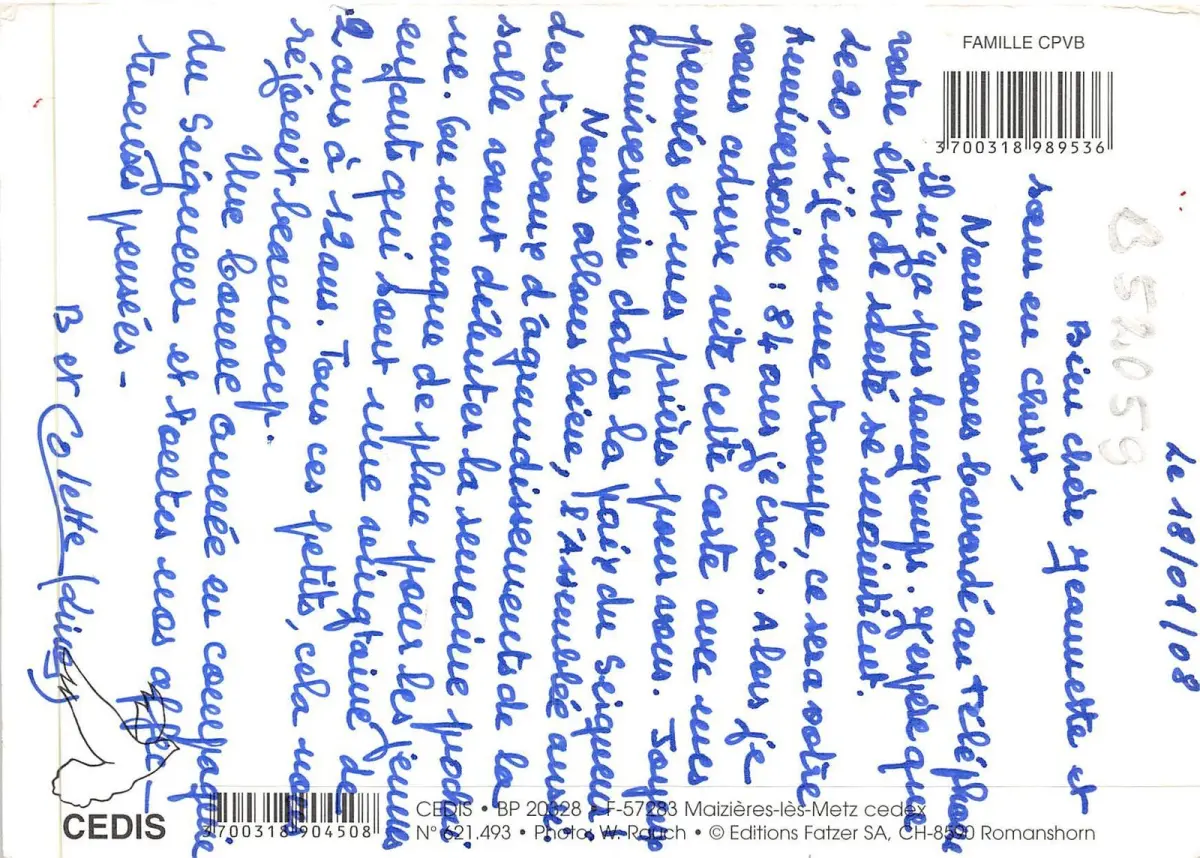 Le 18/01/08
Bien chère Jeannette et
sœur en christ,
Nous avons bavardé au téléphone
il n'y a pas longtemps. J'espère que
votre état de santé se maintient.
Le 20, si je ne me trompe, ce sera votre
Anniversaire : 84 ans je crois. Alors je
vous adresse vite cette carte avec mes
pensées et mes prières pour vous. Joyeux
anniversaire dans la paix du Seigneur.
Nous allons bien, l'Assemblée aussi
des travaux d'agrandissements de la
salle vont débuter la semaine prochai-
ne. On manque de place pour les jeunes
enfants qui sont une vingtaine de
2 ans à 12 ans. Tous ces petits, cela nous
réjouit beaucoup.
Une bonne année en compagnie
du Seigneur et toutes nos affec-
tueuses pensées -
B et Colette
FAMILLE CPVB
3 700318 989536
B 572.059
CEDIS
3 700318 904508
CEDIS • BP 20328 • F-57283 Maizières-lès-Metz cedex
N° 621.493 • Photo: W. Rauch • © Editions Fatzer SA, CH-8590 Romanshorn